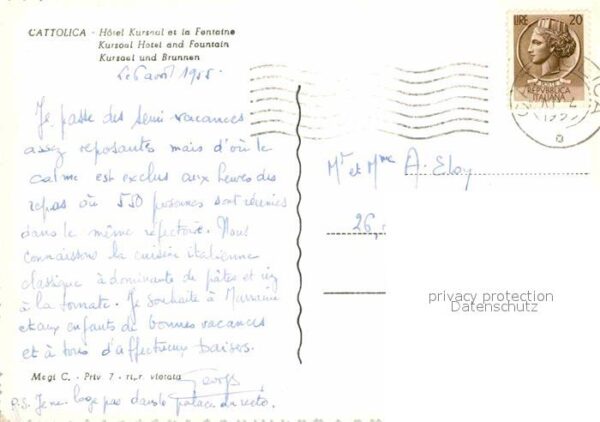 CATTOLICA - Hôtel Kursaal et la Fontaine
Kursaal Hotel and Fountain
Kursaal und Brunnen
Le 6 avril
Je passe des semi-vacances
assez reposantes mais d'où le
calme est exclus aux heures des
repas où 550 personnes sont réunies
dans le même réfectoire. Nous
connaissons la cuisine italienne
classique à dominante de pâtes et riz
à la tomate. Je souhaite à
et aux enfants de bonnes vacances
et à tous d'affectueux baisers.
Megi C. - Priv. 7 - ripr. vietata
P.S. Je ne loge pas dans le palace du recto.
LIRE 20
REPVBBLICA
ITALIANA
Mr et Mme A. Eloy
26,
privacy protection
Datenschutz